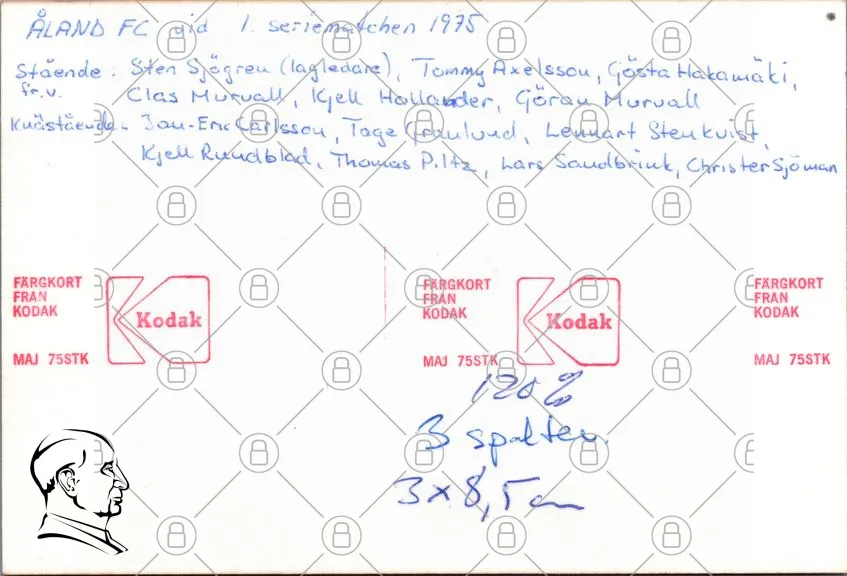 ÅLAND FC vid 1. seriematchen 1975
Stående: Sten Sjögren (lagledare), Tommy Axelsson, Gösta Hakamäki,
fr.v. Clas Murvall, Kjell Hollander, Göran Murvall
Knästående. Jan-Eric Carlsson, Tage Granlund, Lennart Stenkvist,
Kjell Rundblad, Thomas Piltz, Lars Sandbrink, Christer Sjöman
FÄRGKORT
FRÅN
KODAK
MAJ 75STK
Kodak
FÄRGKORT
FRÅN
KODAK
MAJ 75STK
Kodak
FÄRGKORT
FRÅN
KODAK
MAJ 75STK
120%
3 spalter.
3x8,5cm